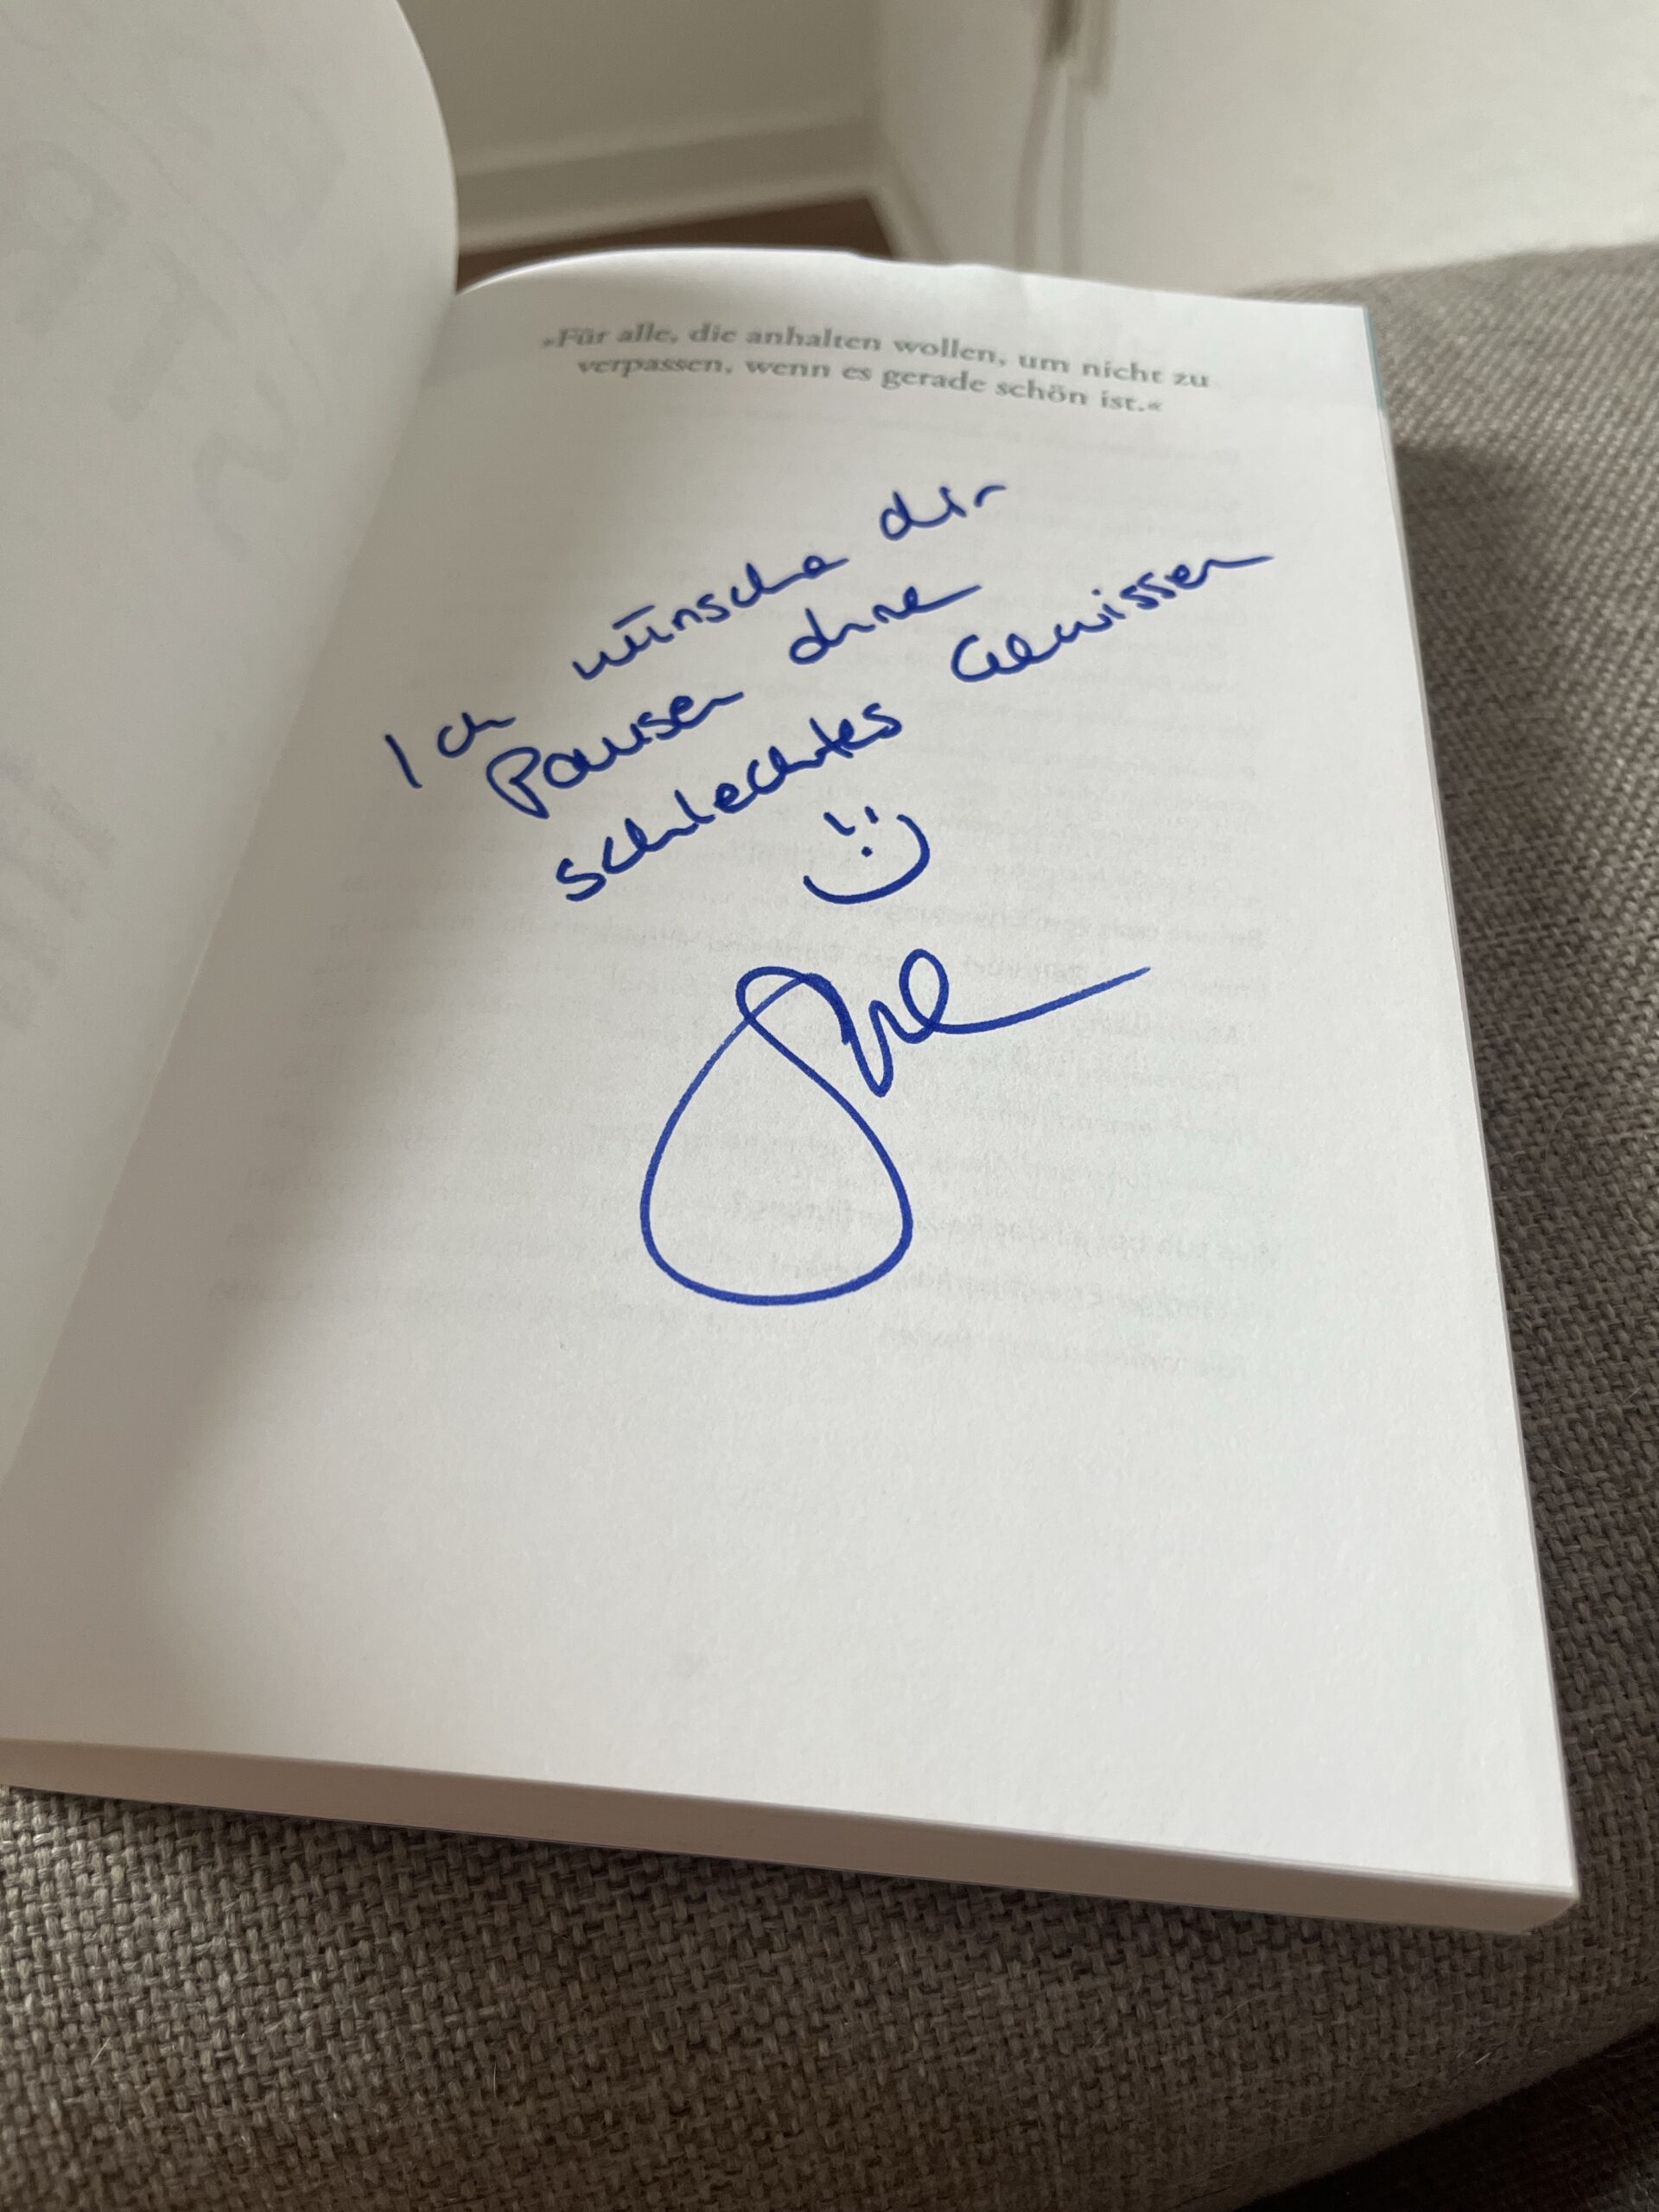 »Für alle, die anhalten wollen, um nicht zu
verpassen, wenn es gerade schön ist.«
Ich wünsche dir
Pausen ohne
schlechtes Gewissen